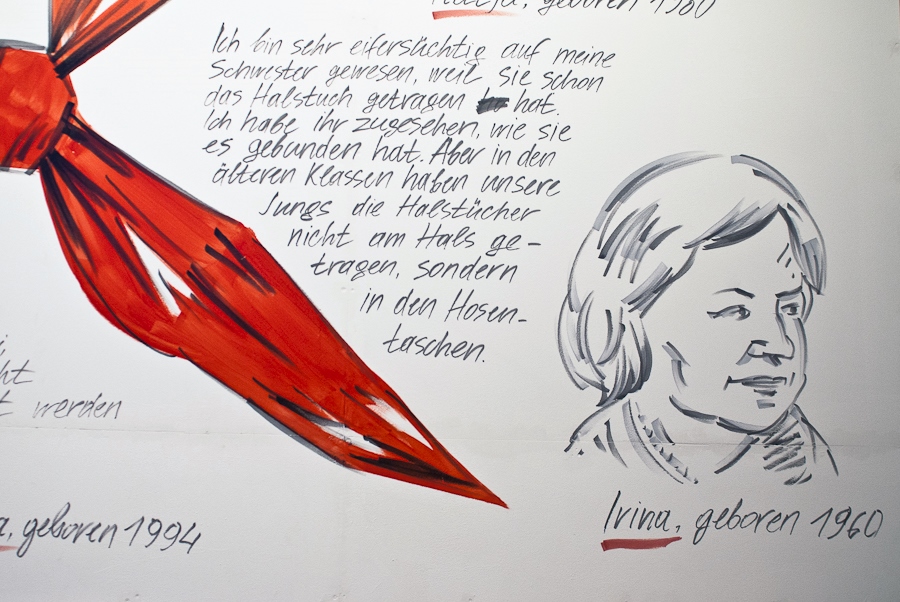 geboren 1980
Ich bin sehr eifersüchtig auf meine
Schwester gewesen, weil sie schon
das Halstuch getragen hat.
Ich habe ihr zugesehen, wie sie
es gebunden hat. Aber in den
älteren Klassen haben unsere
Jungs die Halstücher
nicht am Hals ge-
tragen, sondern
in den Hosen-
taschen.
werden
geboren 1994
Irina, geboren 1960